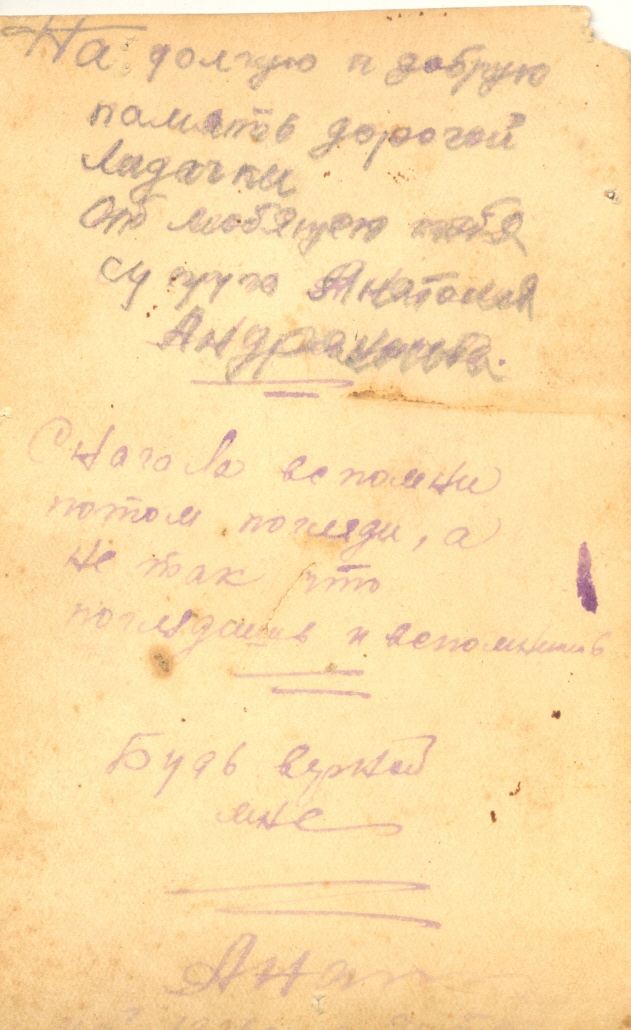 На долгую и добрую
память дорогой
Ладачки
От любящего тебя
супруга Анатолия
Снагала вспомни
потом погляди, а
не так что
поглядишь и вспомнишь
Будь верной
мне
Анат